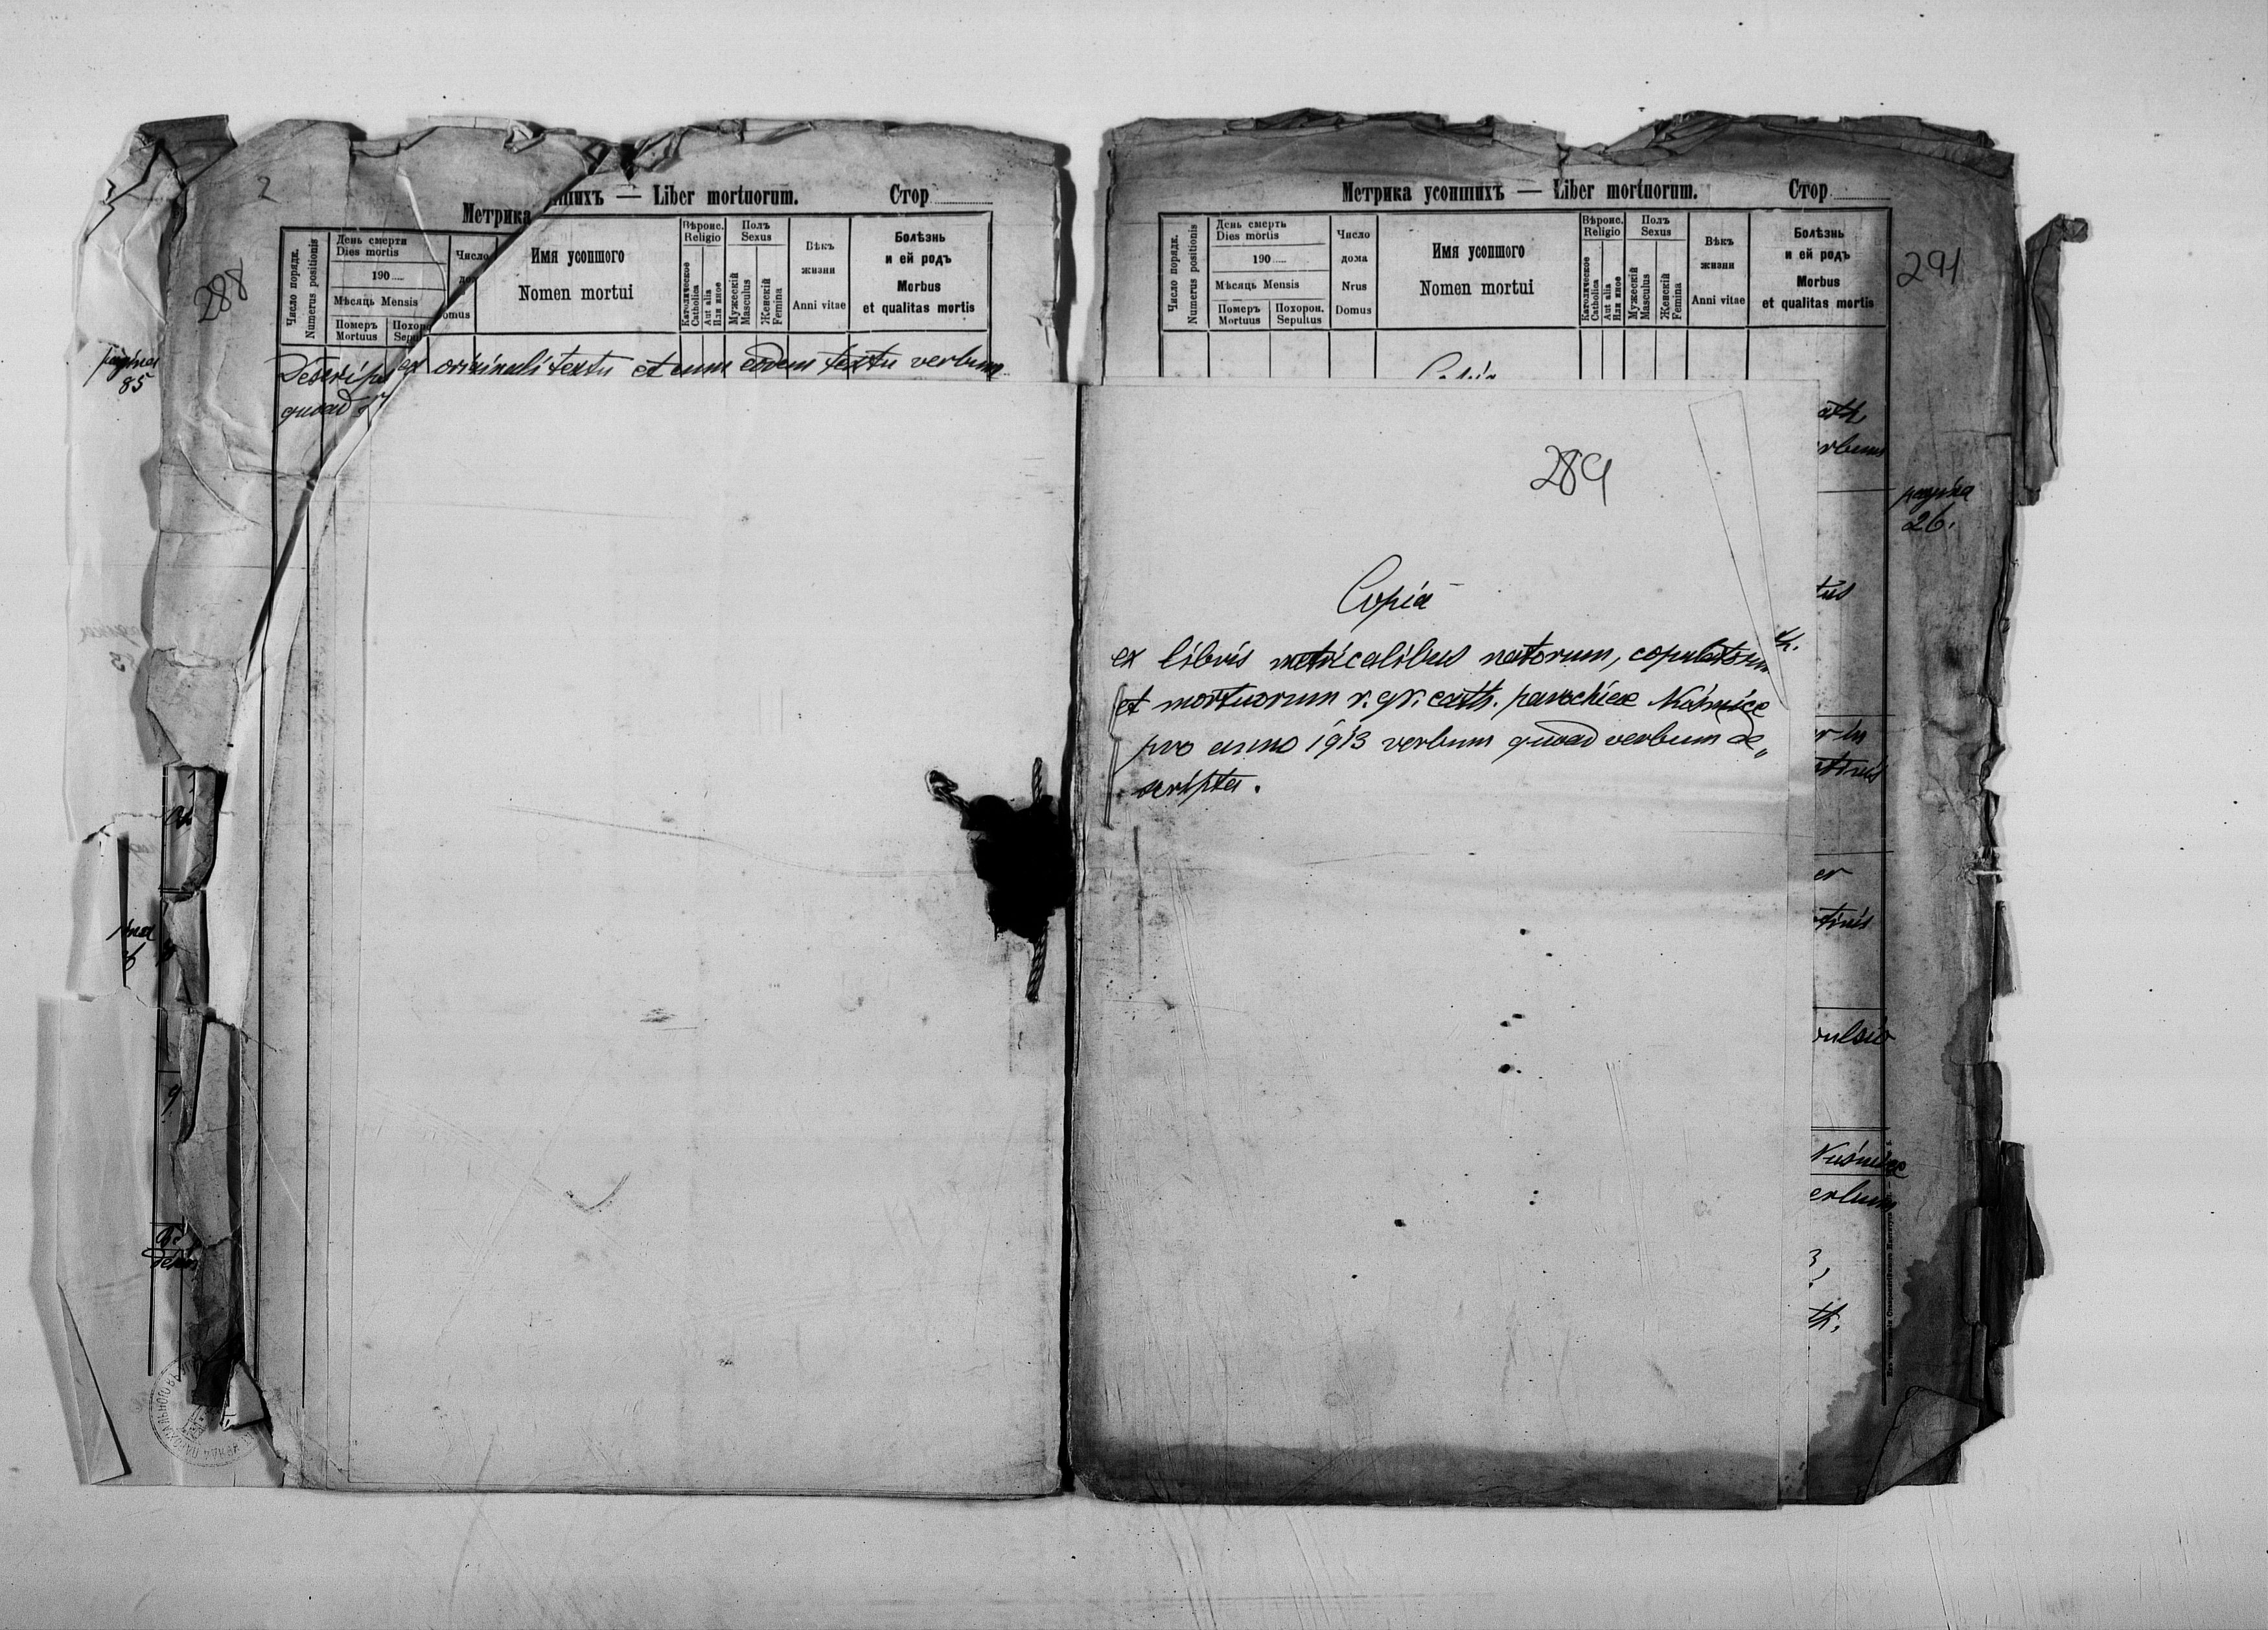 2
Метрика шихъ — Liber mortuorum. Стор.
288
Число порядк.
Numerus positionis
День смерти
Dies mortis
190
Мѣсяць Mensis
Померъ
Mortuus
Похор
Sepul
Число
до
omus
Имя усопшого
Nomen mortui
Вѣроис.
Religio
Католическое
Catholica
Aut alia
Или иное
Полъ
Sexus
Мужескій
Masculus
Женскій
Femina
Вѣкъ
жизни
Anni vitae
Болѣзнь
и ей родъ
Morbus
et qualitas mortis
pagina
85
ex originali textu et cum eodem textu verbum
quoad
Метрика усопшихъ — Liber mortuorum. Стор.
291
Число порядк.
Numerus positionis
День смерть
Dies mortis
190
Мѣсяць Mensis
Померъ
Mortuus
Похорон.
Sepultus
Число
дома
Nrus
Domus
Имя усопшого
Nomen mortui
Вѣроис.
Religio
Католическое
Catholica
Aut alia
Или иное
Полъ
Sexus
Мужескій
Masculus
Женскій
Femina
Вѣкъ
жизни
Anni vitae
Болѣзнь
и ей родъ
Morbus
et qualitas mortis
289
Copia
ex libris metricalibus natorum, copulatorum
et mortuorum r. gr. cath. parochiae Kuśnice
pro anno 1913 verbum quoad verbum de„
scripta.
pagina
26.
ath,
rbum
tus
r in
er
tinis
vulsio
erbum
3,
th.